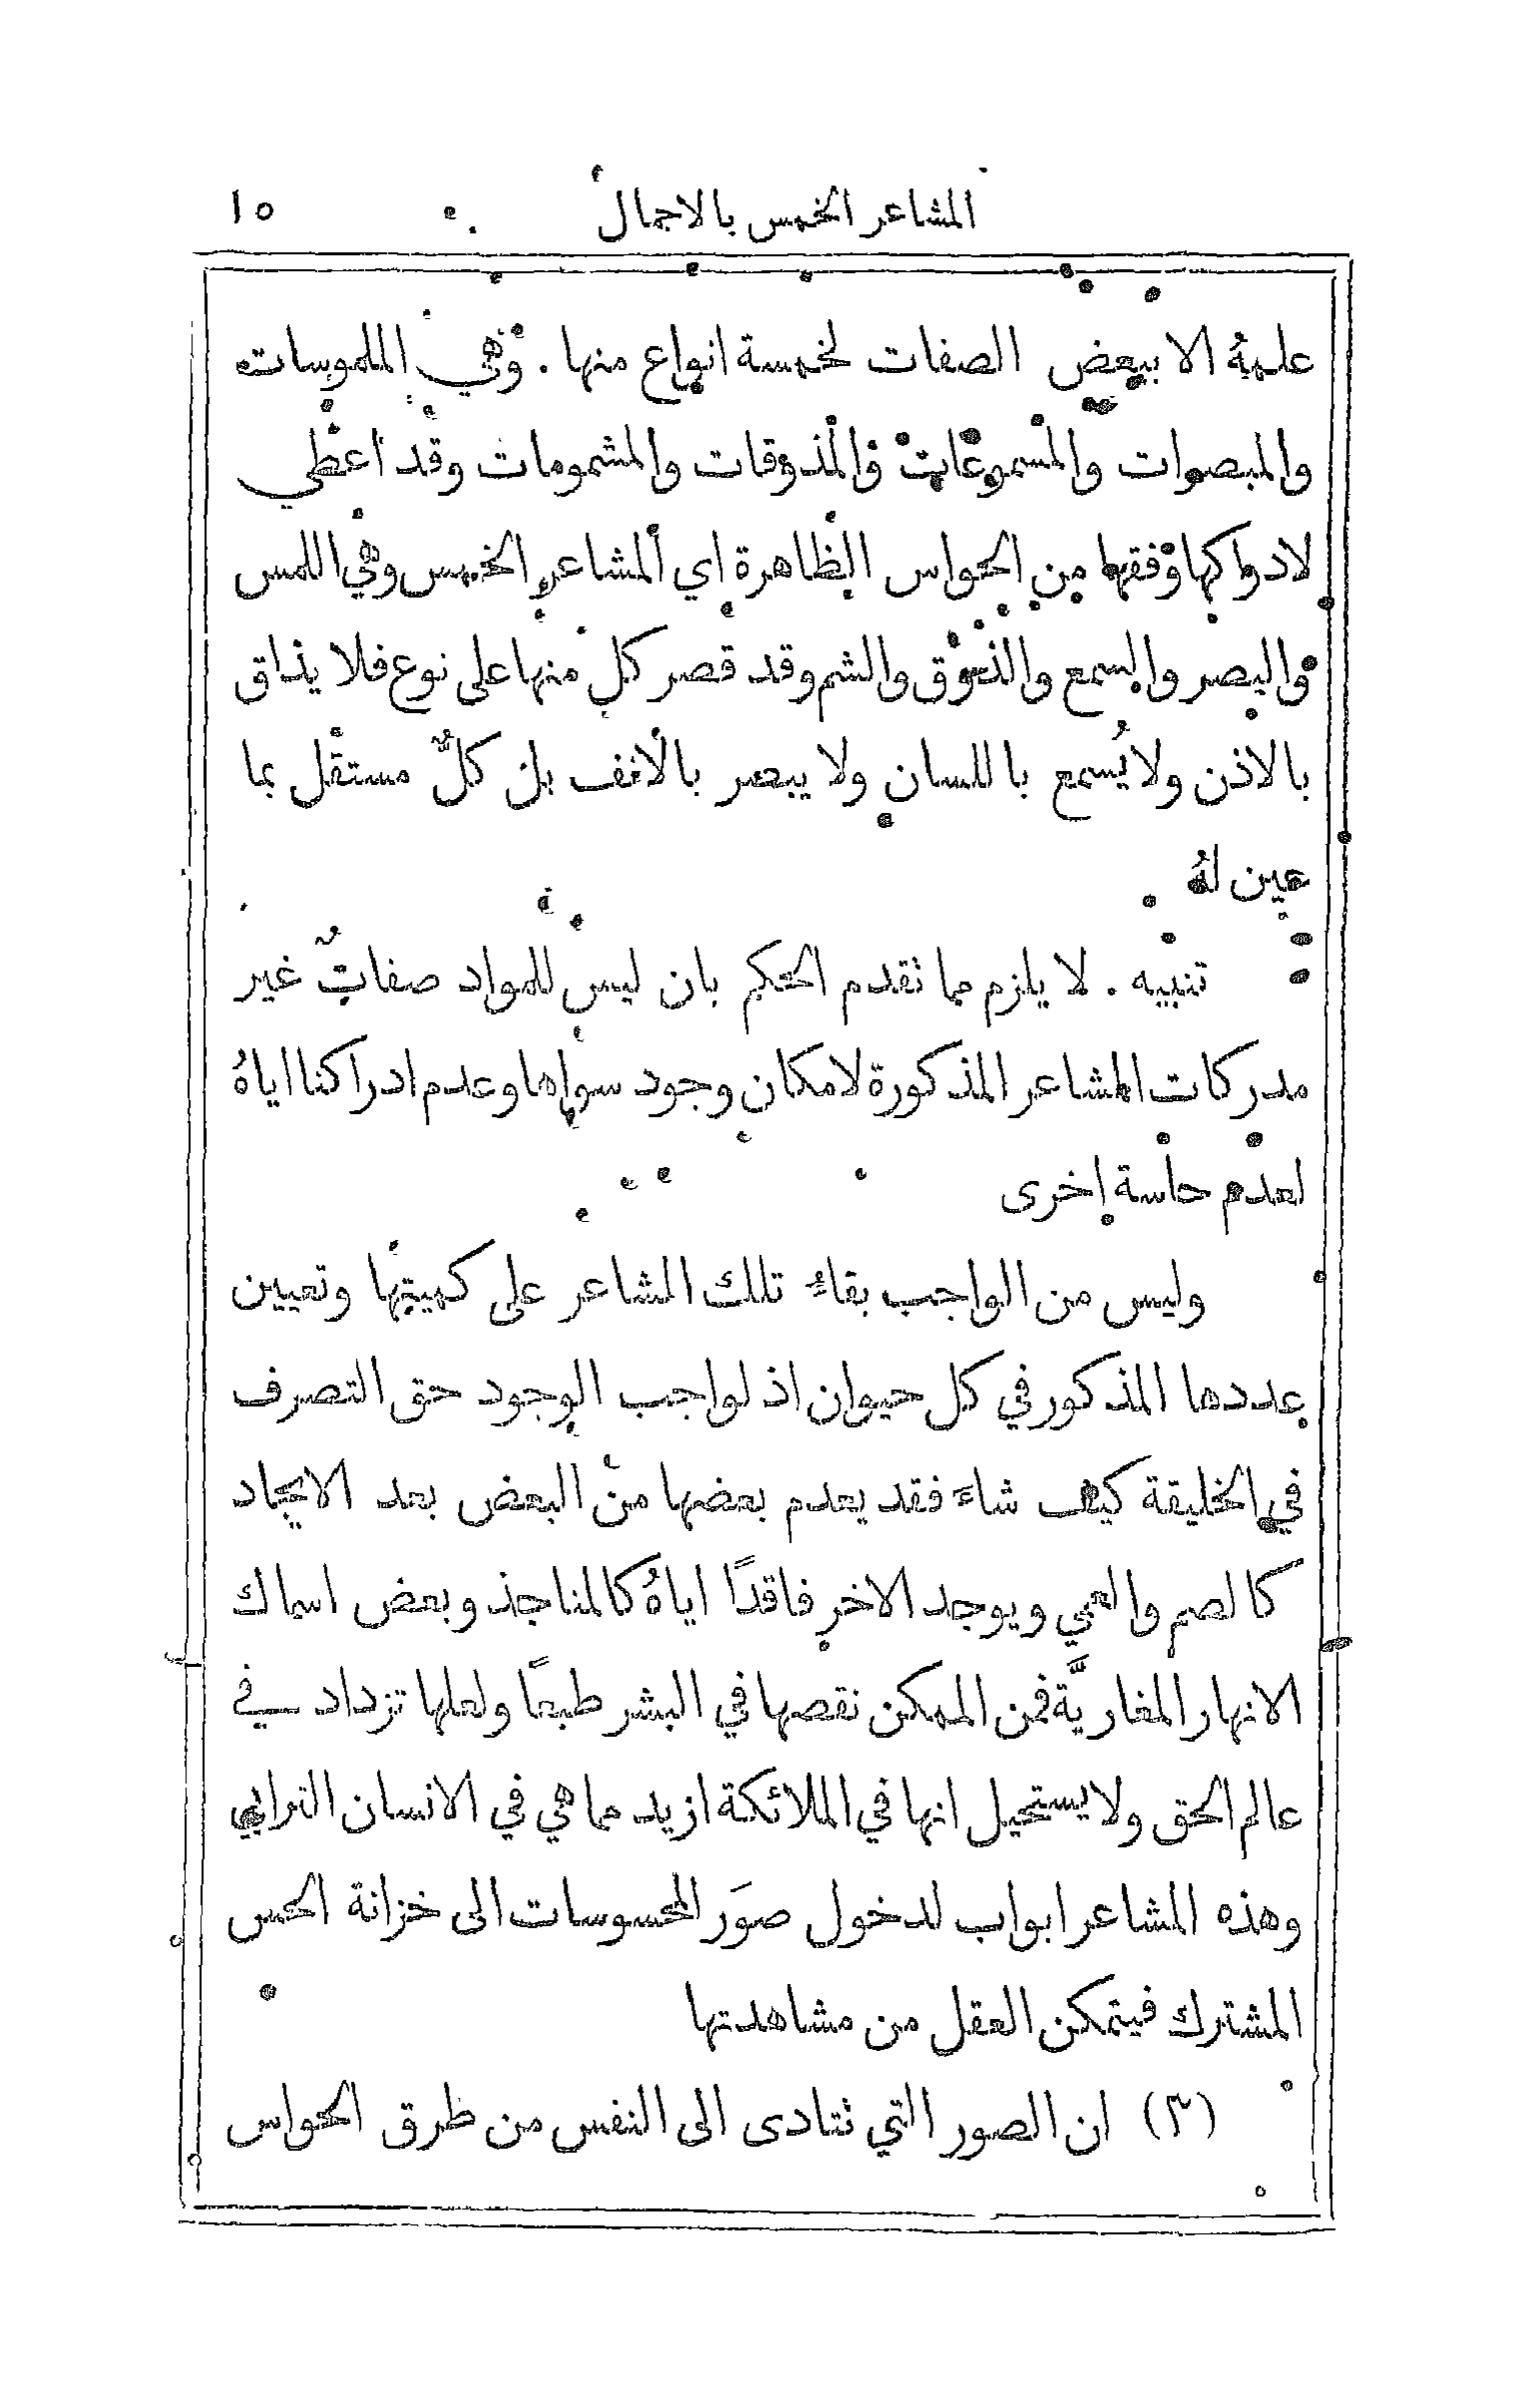 المشاعر الخمس بالاجمال ١٥
عليهِ الا ببعض الصفات لخمسة انواع منها . وهي الملموسات
والمبصرات والمسموعات والمذوقات والمشمومات وقد اعطي
لادراكها وفقها من الحواس الظاهرة اي المشاعر الخمس وهي اللمس
والبصر والسمع والذوق والشم وقد قصر كل منها على نوع فلا يذاق
بالاذن ولا يُسمع باللسان ولا يبصر بالانف بل كلٌّ مستقل بما
عين لهُ
تنبيه . لا يلزم مما نقدم الحكم بان ليس للمواد صفاتٌ غير
مدركات المشاعر المذكورة لامكان وجود سواها وعدم ادراكنا اياهُ
لعدم حاسة اخرى
وليس من الواجب بقاءُ تلك المشاعر على كميتها وتعيين
عددها المذكور في كل حيوان اذ لواجب الوجود حق التصرف
في الخليقة كيف شاءَ فقد يعدم بعضها من البعض بعد الايجاد
كالصم والعمي ويوجد الاخر فاقدًا اياهُ كالمناجذ وبعض اسماك
الانهار المغاريَّة فمن الممكن نقصها في البشر طبعًا ولعلها تزداد في
عالم الحق ولا يستحيل انها في الملائكة ازيد مما هي في الانسان الترابي
وهذه المشاعر ابواب لدخول صوَر المحسوسات الى خزانة الحس
المشترك فيتمكن العقل من مشاهدتها
(٣) ان الصور التي نتادى الى النفس من طرق الحواس